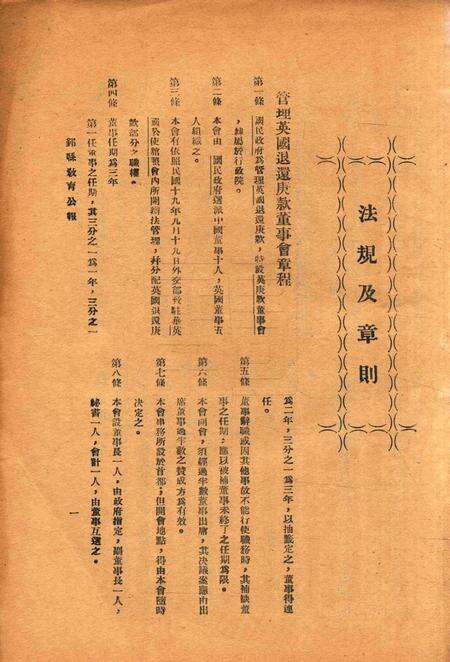 法規及章則
管理英國退還庚款董事會章程
第一條　國民政府爲管理英國退還庚款，特設英庚款董事會
，隸屬於行政院。
第二條　本會由　國民政府選派中國董事十人，英國董事五
人組織之。
第三條　本會有依照民國十九年九月十九日外交部致駐華英
國公使館照會內所開辦法管理，幷分配英國退還庚
款部分之職權。
第四條　董事任期爲三年
第一任董事之任期，其三分之一爲一年，三分之一
爲二年，三分之一爲三年，以抽籤定之，董事得連
任。
第五條　董事辭職或因其他事故不能行使職務時，其補缺董
事之任期，應以被補董事未終了之任期爲限。
第六條　本會開會，須經過半數董事出席，其決議案應由出
席董事過半數之贊成方爲有效。
第七條　本會事務所設於首都，但開會地點，得由本會隨時
決定之。
第八條　本會設董事長一人，由政府指定，副董事長一人，
秘書一人，會計一人，由董事互選之。
鄞縣敎育公報
一